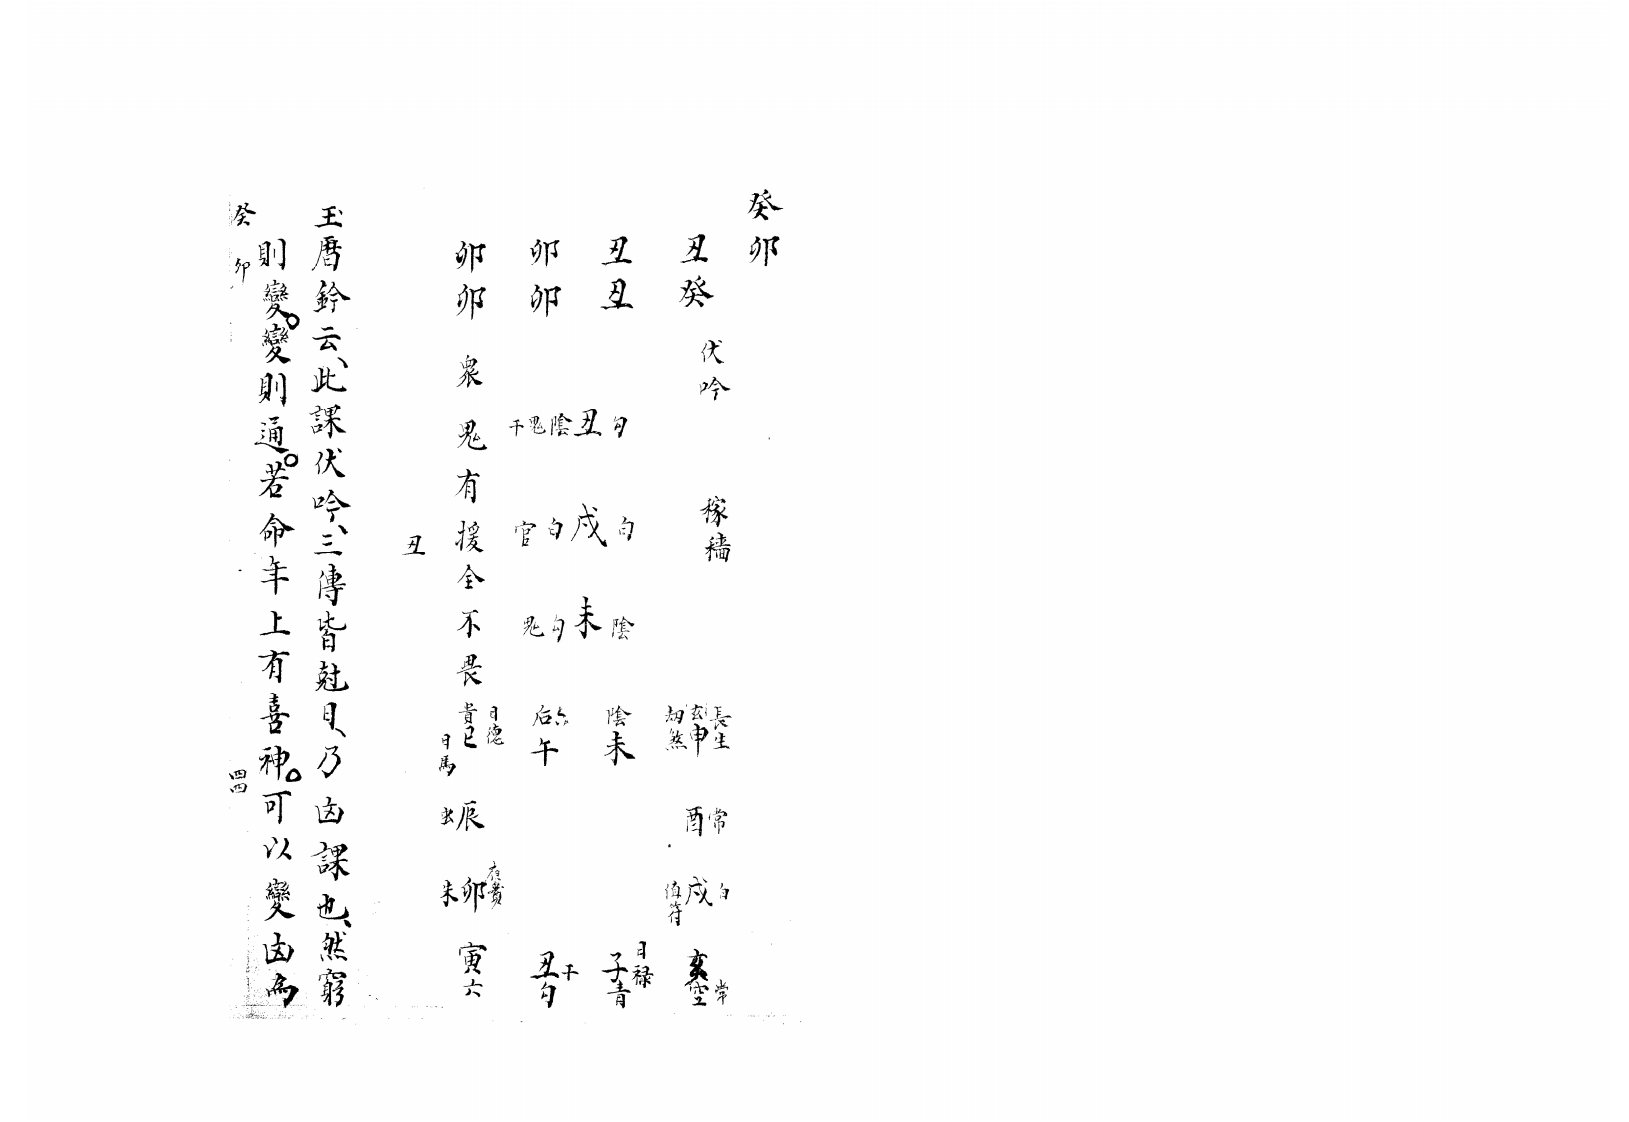 癸卯
丑癸 伏吟 稼穡
丑丑
卯卯
卯卯 衆鬼有援全不畏
勾丑陰鬼干
白戌白官
陰未勾鬼
長生 玄申 劫煞
常酉
白戌
常 亥空
陰未
日祿 子青
后午
干 丑勾
日德 貴巳 日馬
辰
卯朱
寅六
丑
玉曆鈐云、此課伏吟、三傳皆尅日、乃凶課也、然窮
則變。變則通。若命年上有喜神。可以變凶為
癸卯
四四